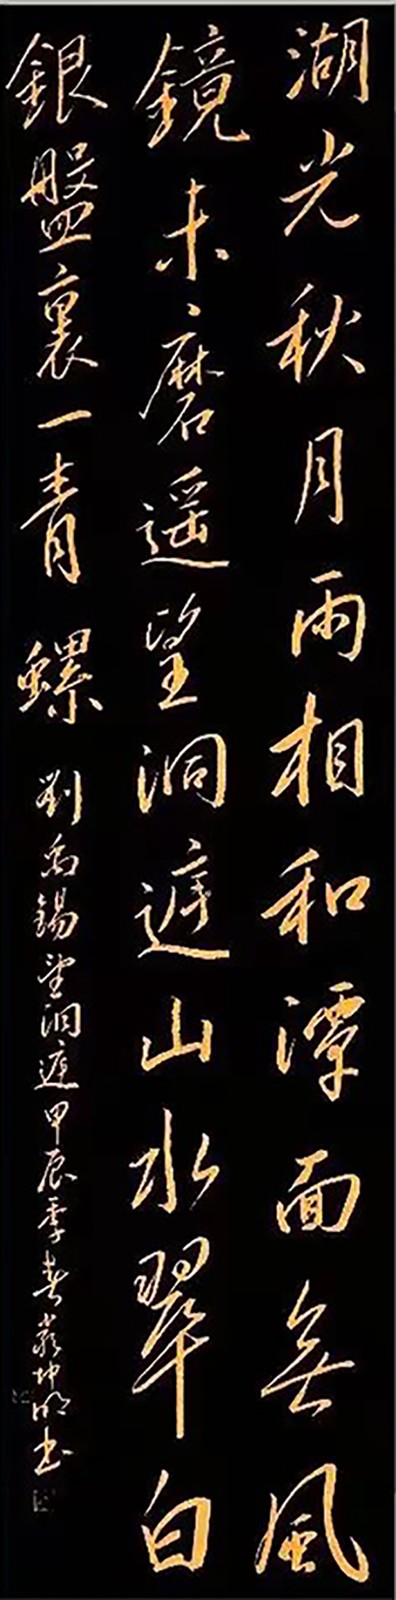 湖光秋月兩相和潭面無風
鏡未磨遥望洞庭山水翠白
銀盤裏一青螺 劉禹錫望洞庭甲辰季春嚴坤明書